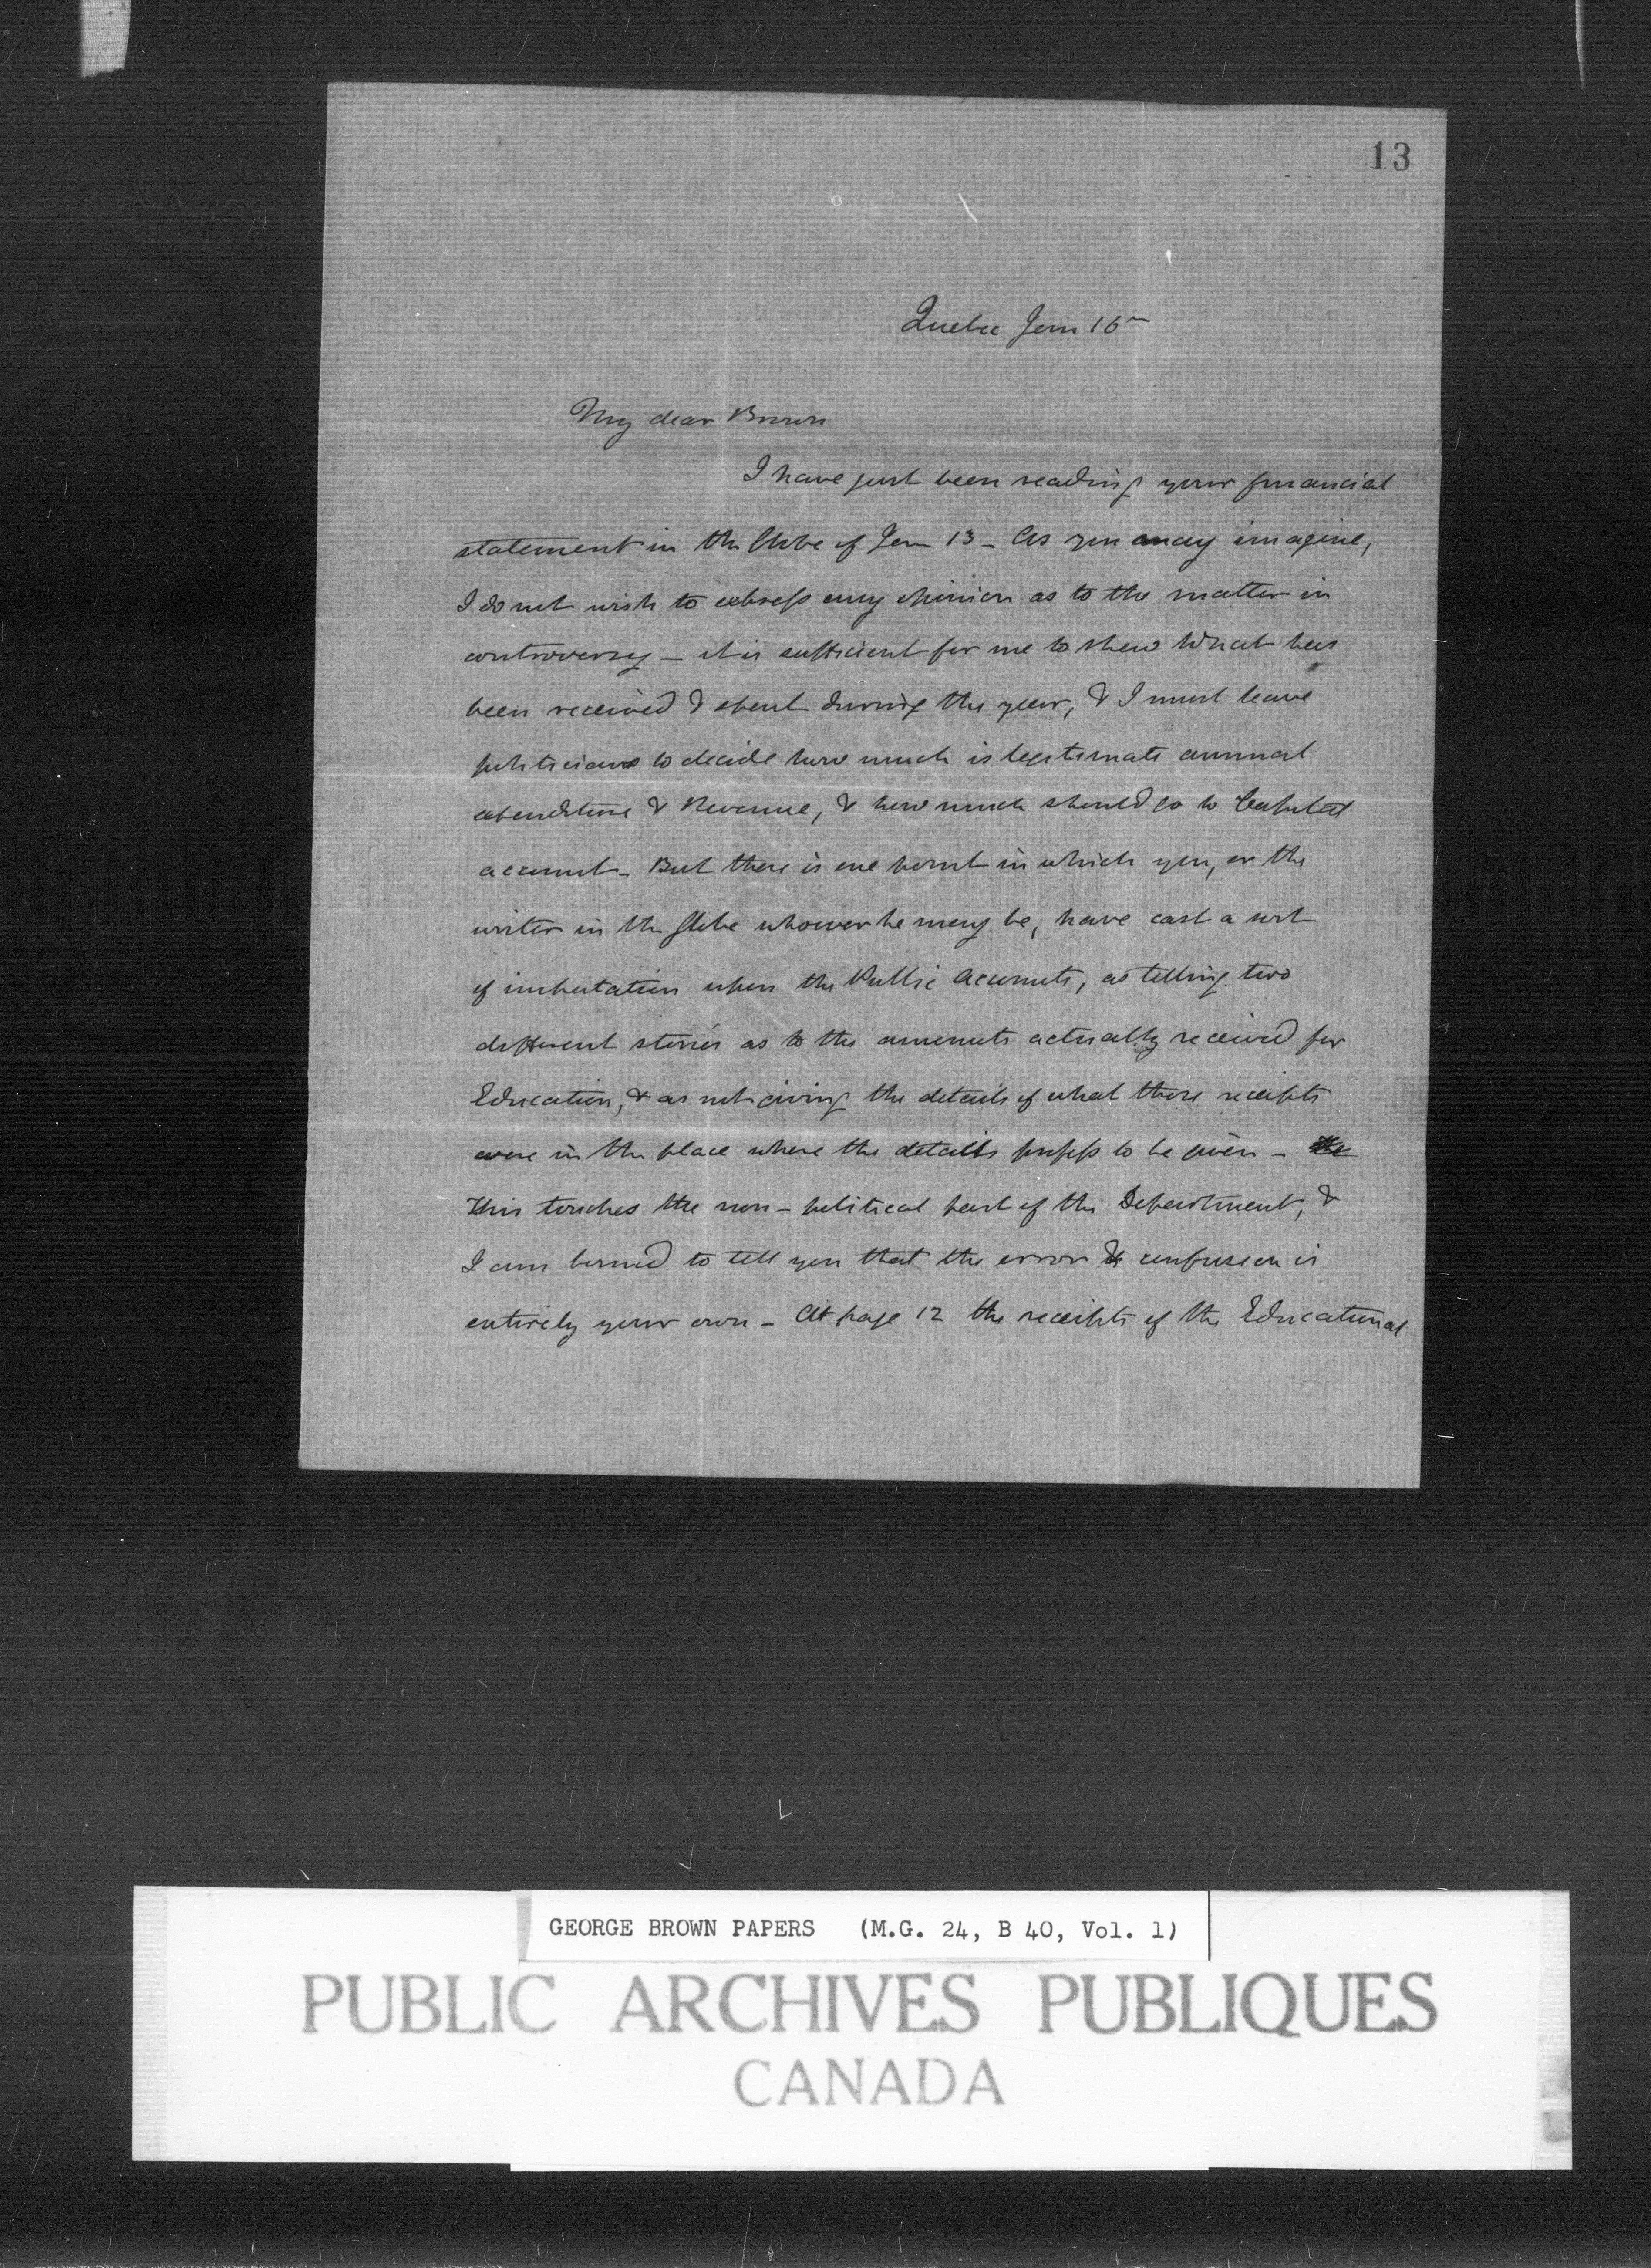 13
Quebec Jan 16th
My dear Brown
I have just been reading your financial
statement in the Globe of Jan 13 - As you may imagine,
I do not wish to express any opinion as to the matter in
controversy - it is sufficient for me to shew what has
been received & spent during the year, & I must leave
politicians to decide how much is legitimate annual
expenditure & Revenue, & how much should go to Capital
account - But there is one point in which you, or the
writer in the Globe whoever he may be, have cast a sort
of imputation upon the Public Accounts, as telling two
different stories as to the amounts actually received for
Education, & as not giving the details of what those receipts
were in the place where the details profess to be given - the
This touches the non-political part of the Department, &
I am bound to tell you that the error & confusion is
entirely your own - At page 12 the receipts of the Educational
GEORGE BROWN PAPERS (M.G. 24, B 40, Vol. 1)
PUBLIC ARCHIVES PUBLIQUES
CANADA